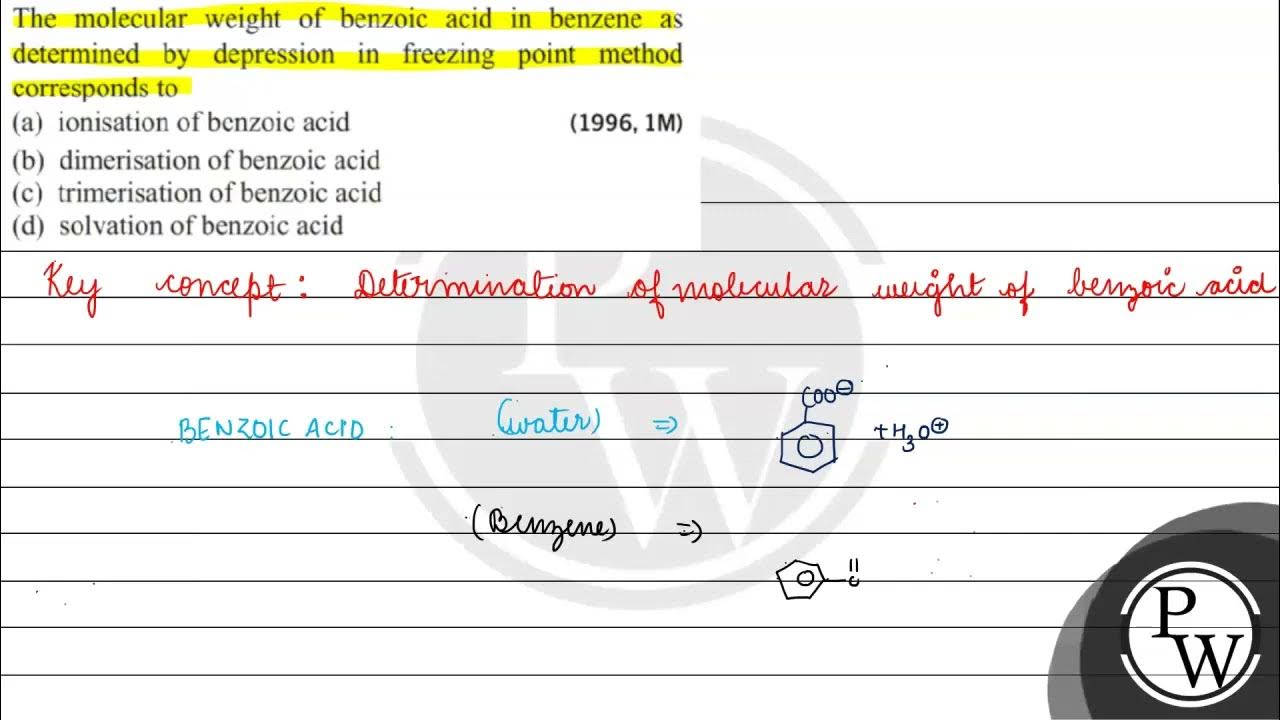 The molecular weight of benzoic acid in benzene as
determined by depression in freezing point method
corresponds to
(a) ionisation of benzoic acid (1996, 1M)
(b) dimerisation of benzoic acid
(c) trimerisation of benzoic acid
(d) solvation of benzoic acid
Key concept : Determination of molecular weight of benzoic acid
COO⊖
BENZOIC ACID : (water) ⇒ + H₃O⊕
(Benzene) ⇒
C
P
W
PW